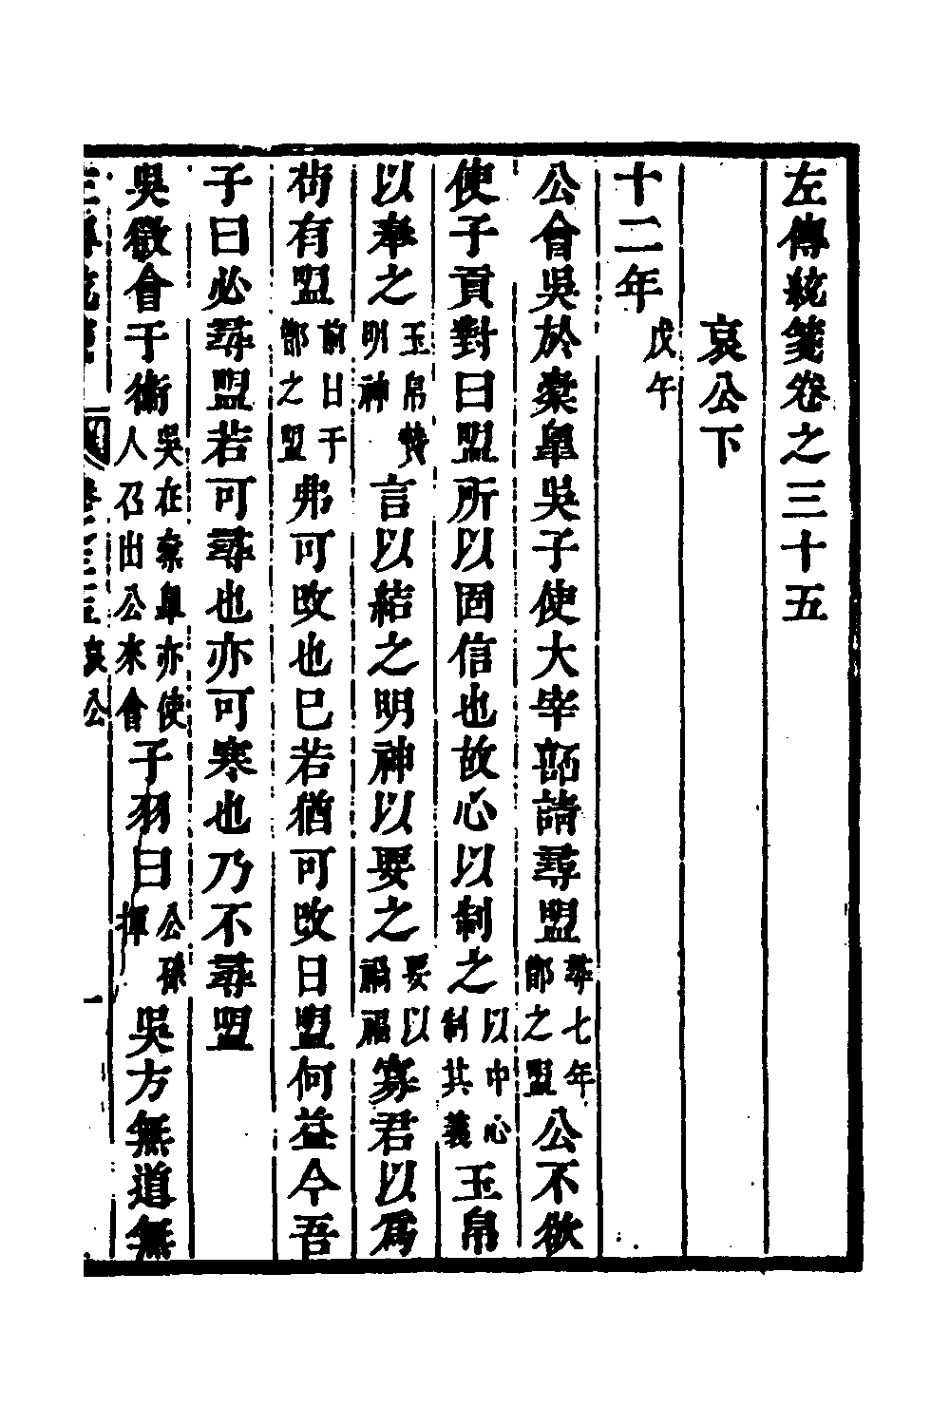 左傳統箋卷之三十五
哀公下
十二年戊午
公會吳於橐皐吳子使大宰嚭請尋盟尋七年鄫之盟公不欲
使子貢對曰盟所以固信也故心以制之以中心制其義玉帛
以奉之玉帛犧明神言以結之明神以要之要以禍福寡君以爲
苟有盟前日于鄫之盟弗可改也已若猶可改日盟何益今吾
子曰必尋盟若可尋也亦可寒也乃不尋盟
吳徵會于衛吳在橐皐亦使人召出公來會子羽曰公孫揮吳方無道無